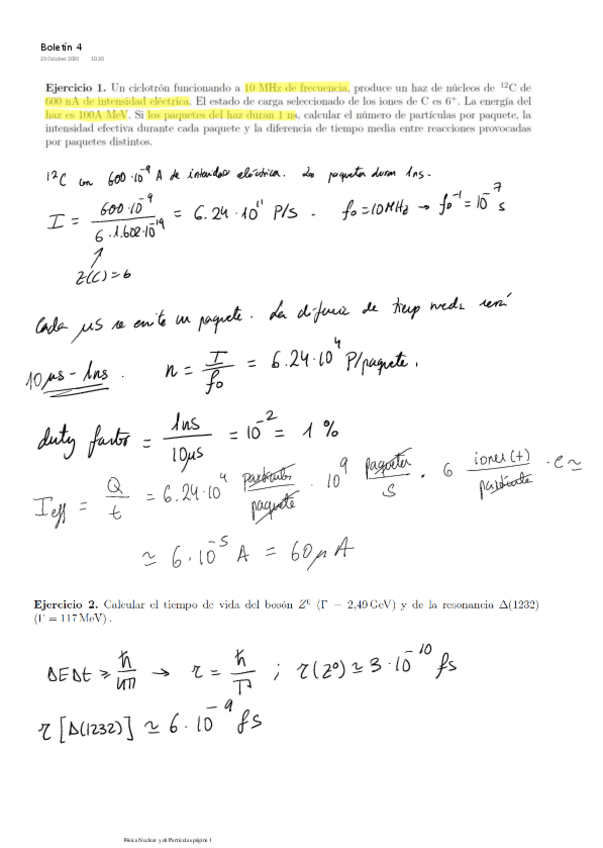 Boletín 4
23 October 2020 10:20
Ejercicio 1. Un ciclotrón funcionando a 10 MHz de frecuencia, produce un haz de núcleos de ¹²C de
600 nA de intensidad eléctrica. El estado de carga seleccionado de los iones de C es 6⁺. La energía del
haz es 100A MeV. Si los paquetes del haz duran 1 ns, calcular el número de partículas por paquete, la
intensidad efectiva durante cada paquete y la diferencia de tiempo media entre reacciones provocadas
por paquetes distintos.
¹²C con 600·10⁻⁹ A de intensidad eléctrica. Los paquetes duran 1ns.
I = 600·10⁻⁹ / 6·1.602·10⁻¹⁹ = 6.24·10¹¹ P/s. f₀ = 10MHz → f₀⁻¹ = 10⁻⁷ s
Z(C) = 6
Cada μs se emite un paquete. La difncia de tiemp media será
10 μs - 1ns. n = I / f₀ = 6.24·10⁴ P/paquete.
duty factor = 1ns / 10μs = 10⁻² = 1 %
I eff = Q / t = 6.24·10⁴ partículas / paquete · 10⁹ paquetes / s · 6 iones(+) / partícula · e ≃
≃ 6·10⁻⁵ A = 60μA
Ejercicio 2. Calcular el tiempo de vida del bosón Z⁰ (Γ = 2,49 GeV) y de la resonancia Δ(1232)
(Γ = 117 MeV).
ΔEΔt ≥ ħ → τ = ħ / Γ ; τ(Z⁰) ≃ 3·10⁻¹⁰ fs
τ[Δ(1232)] ≃ 6·10⁻⁹ fs
Física Nuclear y de Partículas página 1